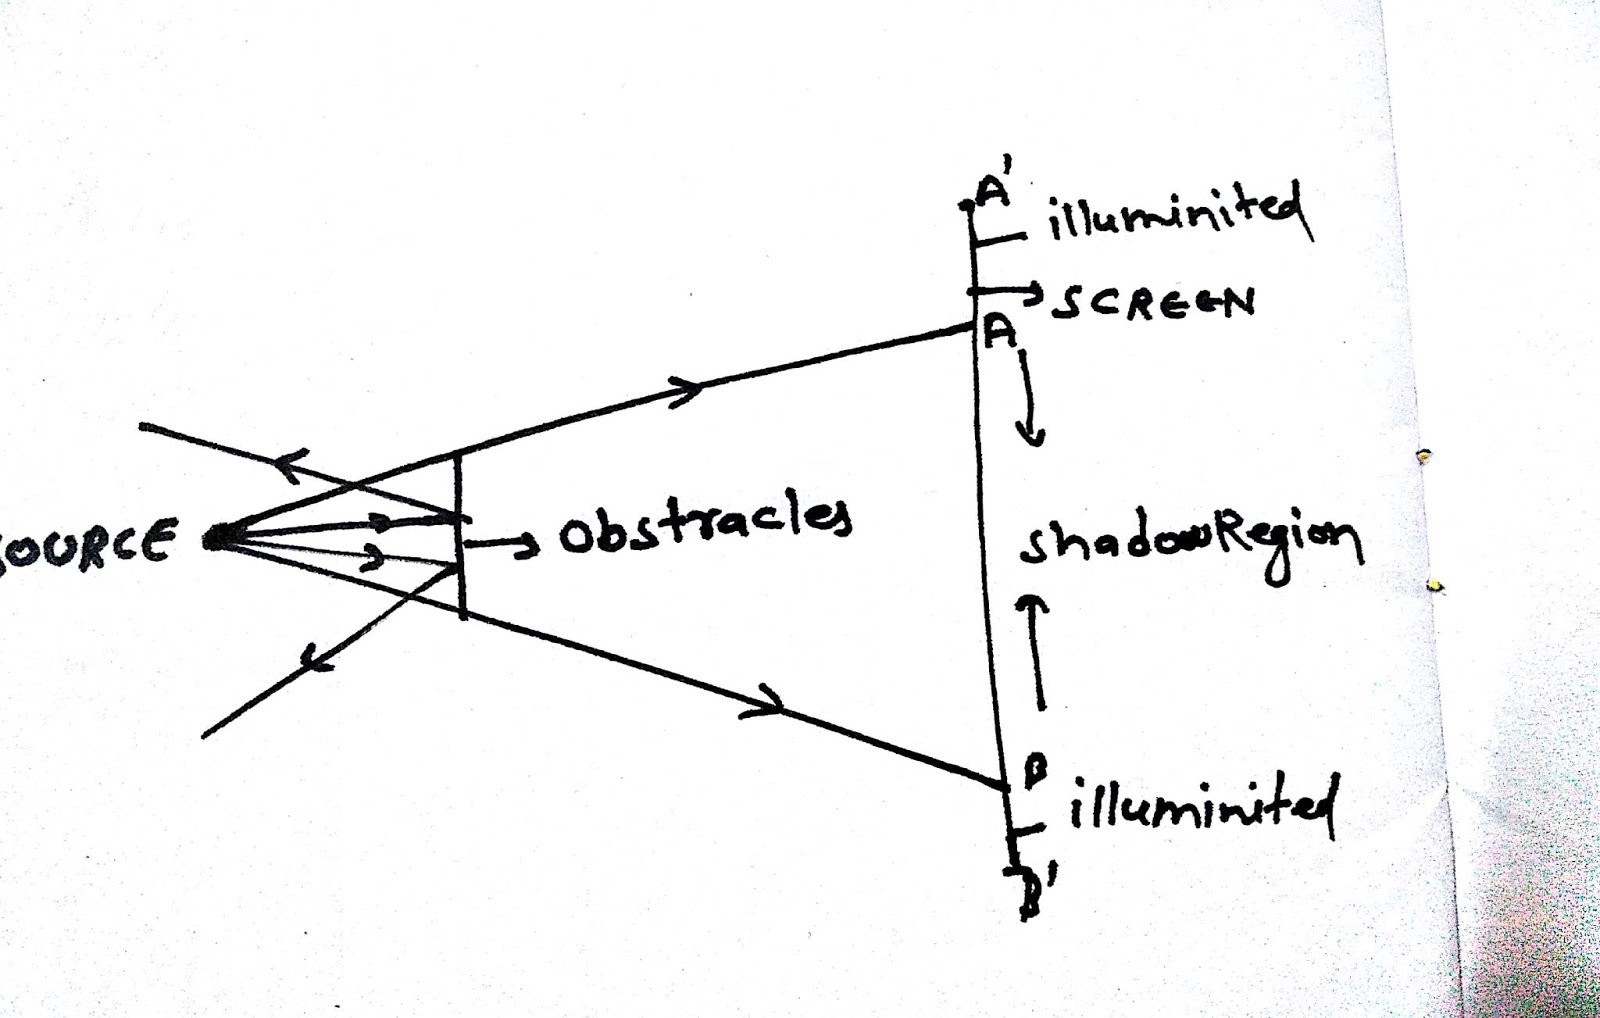 A'
illuminited
SCREEN
A
SOURCE
Obstracles
shadowRegion
B
illuminited
B'